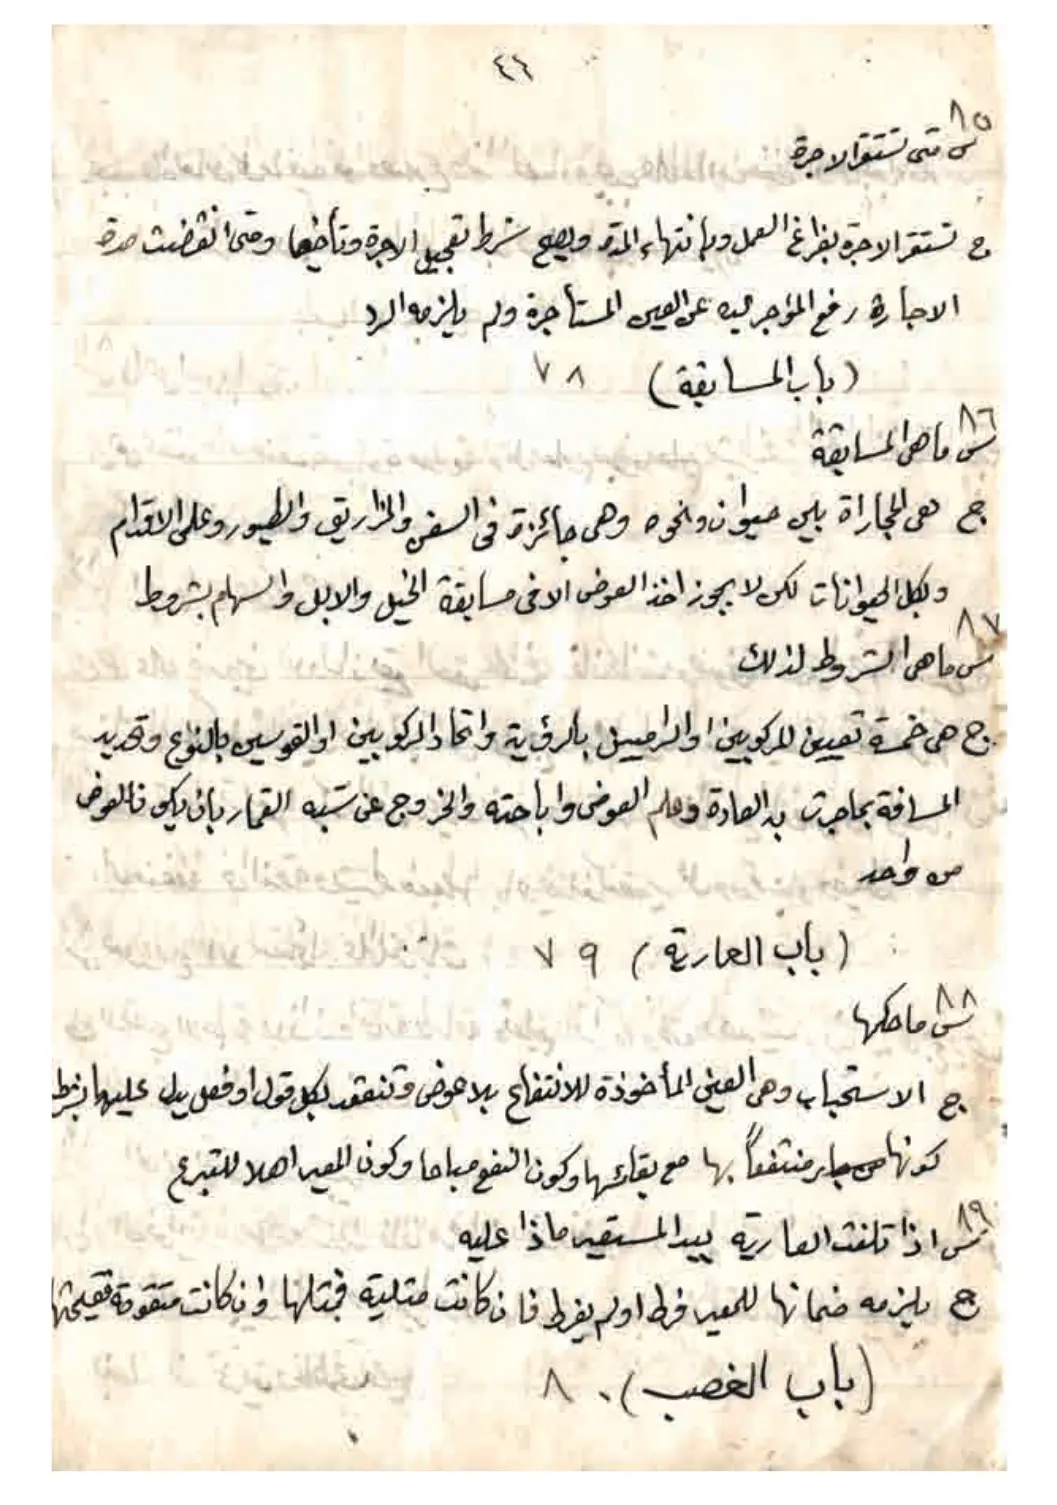 ٤٤
٨٥
س متى تستقر الاجرة
ج تستقر الاجرة بفراغ العمل وبانتهاء المدة ويصح شرط تعجيل الاجرة وتأخيرها ومتى انقضت مدة
الاجارة رفع المؤجر يده عن العين المستأجرة ولم يلزمه الرد
(باب المسابقة) ٧٨
٨٦
س ما هى المسابقة
ج هى المجاراة بين حيوان ونحوه وهى جائزة فى السفن والمزاريق والطيور وعلى الاقدام
وبكل الحيوانات لكن لا يجوز اخذ العوض الا فى مسابقة الخيل والابل والسهام بشروط
٨٧
س ما هى الشروط لذلك
ج هى خمسة تعيين المركوبين او الراميين بالرؤية واتحاد المركوبين او القوسين بالنوع وتحديد
المسافة بما جرت به العادة وعلم العوض واباحته والخروج عن شبه القمار بان يكون العوض
من واحد
(باب العارية) ٧٩
٨٨
س ما حكمها
ج الاستحباب وهى العين المأخوذة للانتفاع بلا عوض وتنعقد بكل قول او فعل يدل عليها بشرط
كونها منتفعاً بها مع بقائها وكون النفع مباحا وكون المعير اهلا للتبرع
٨٩
س اذا تلفت العارية بيد المستعير ماذا عليه
ج يلزمه ضمانها للمعير فرط او لم يفرط فان كانت مثلية فبمثلها وان كانت متقومة فقيمتها
(باب الغصب) ٨٠